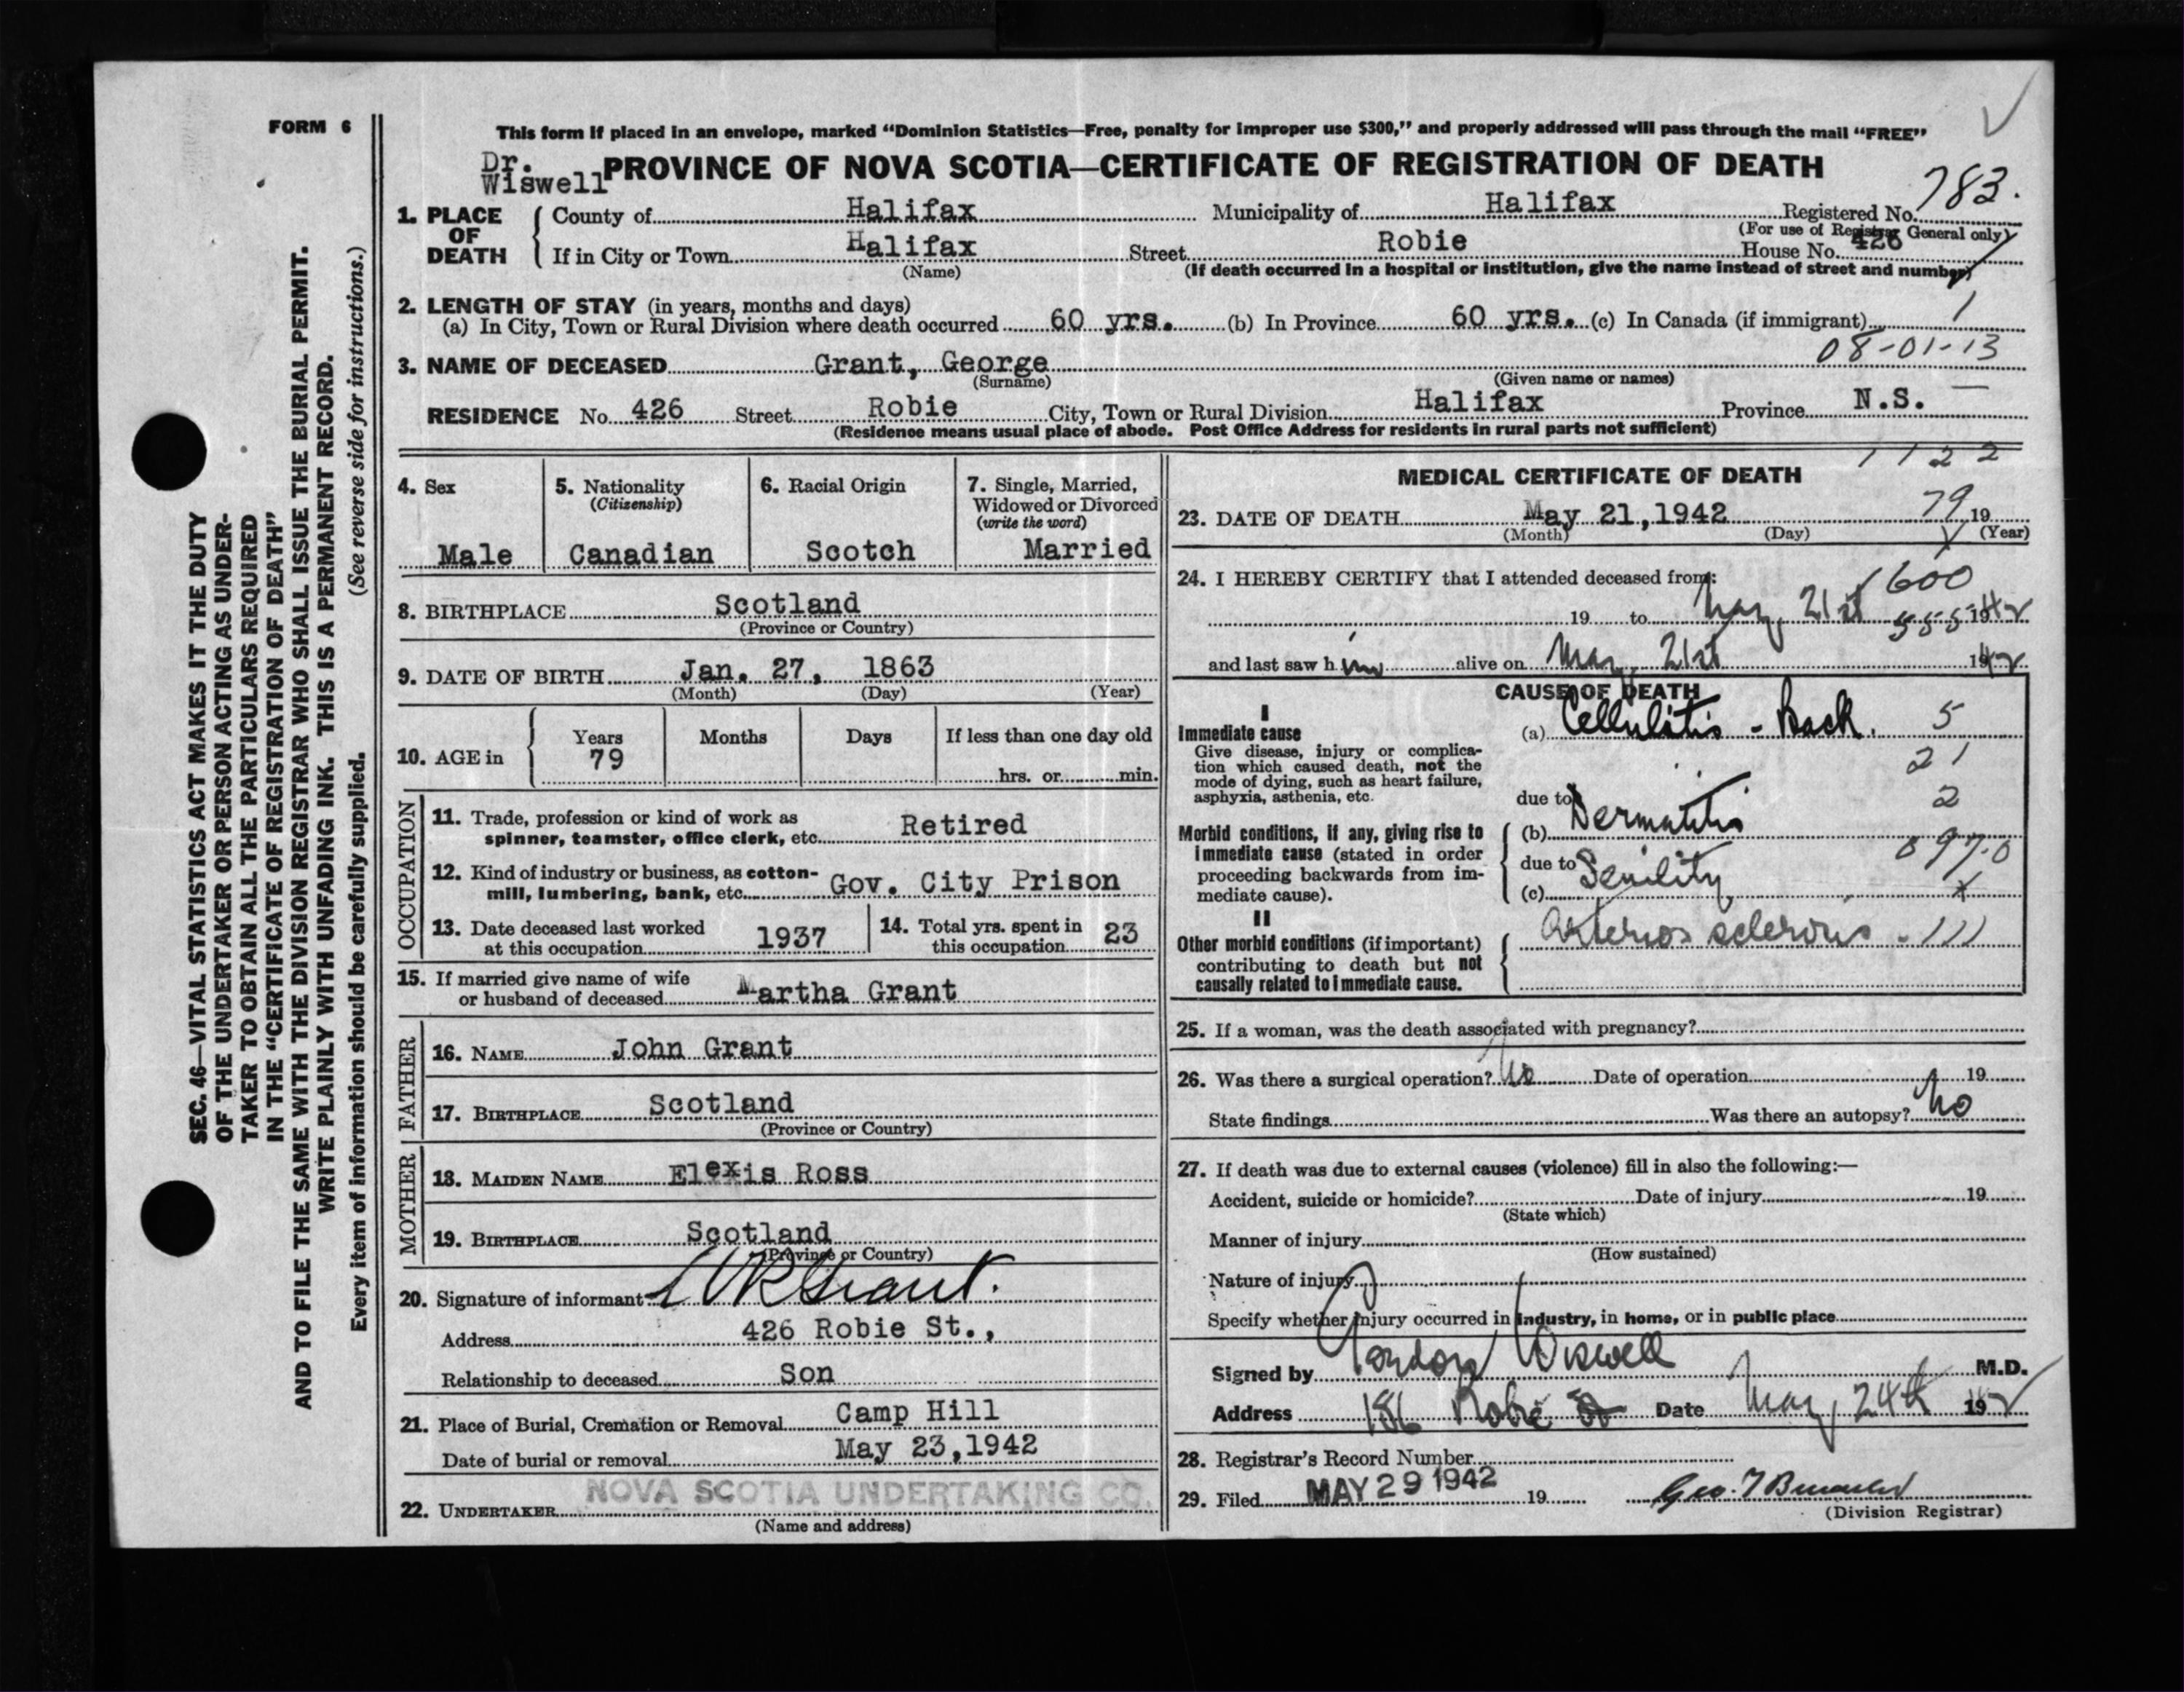 FORM 6
This form if placed in an envelope, marked “Dominion Statistics—Free, penalty for improper use $300,” and properly addressed will pass through the mail “FREE”
Dr.
Wiswell
PROVINCE OF NOVA SCOTIA—CERTIFICATE OF REGISTRATION OF DEATH
783.
1. PLACE OF DEATH
County of Halifax Municipality of Halifax Registered No.
(For use of Registrar General only)
If in City or Town Halifax Street Robie House No. 426
(Name) (If death occurred in a hospital or institution, give the name instead of street and number)
2. LENGTH OF STAY (in years, months and days)
(a) In City, Town or Rural Division where death occurred 60 yrs. (b) In Province 60 yrs. (c) In Canada (if immigrant) 1
08-01-13
3. NAME OF DECEASED Grant, George
(Surname) (Given name or names)
RESIDENCE No. 426 Street Robie City, Town or Rural Division Halifax Province N.S.
(Residence means usual place of abode. Post Office Address for residents in rural parts not sufficient)
4. Sex
Male
5. Nationality
(Citizenship)
Canadian
6. Racial Origin
Scotch
7. Single, Married,
Widowed or Divorced
(write the word)
Married
8. BIRTHPLACE Scotland
(Province or Country)
9. DATE OF BIRTH Jan. 27, 1863
(Month) (Day) (Year)
10. AGE in
Years Months Days If less than one day old
79
hrs. or min.
OCCUPATION
11. Trade, profession or kind of work as
spinner, teamster, office clerk, etc. Retired
12. Kind of industry or business, as cotton-
mill, lumbering, bank, etc. Gov. City Prison
13. Date deceased last worked
at this occupation 1937
14. Total yrs. spent in
this occupation 23
15. If married give name of wife
or husband of deceased Martha Grant
FATHER
16. NAME John Grant
17. BIRTHPLACE Scotland
(Province or Country)
MOTHER
18. MAIDEN NAME Elexis Ross
19. BIRTHPLACE Scotland
(Province or Country)
20. Signature of informant Grant.
Address 426 Robie St.,
Relationship to deceased Son
21. Place of Burial, Cremation or Removal Camp Hill
Date of burial or removal May 23, 1942
22. UNDERTAKER NOVA SCOTIA UNDERTAKING CO.
(Name and address)
1122
MEDICAL CERTIFICATE OF DEATH
79
23. DATE OF DEATH May 21, 1942 19
(Month) (Day) (Year)
24. I HEREBY CERTIFY that I attended deceased from:
600
19 to May 21st 1942
555
and last saw him alive on May 21st 1942
CAUSE OF DEATH
I
Immediate cause
Give disease, injury or complica-
tion which caused death, not the
mode of dying, such as heart failure,
asphyxia, asthenia, etc.
(a) Cellulitis - Back. 5
21
due to
2
Morbid conditions, if any, giving rise to
immediate cause (stated in order
proceeding backwards from im-
mediate cause).
(b) Dermatitis
due to
(c) Senility
097.0
II
Other morbid conditions (if important)
contributing to death but not
causally related to immediate cause.
Arterios sclerosis
25. If a woman, was the death associated with pregnancy?
26. Was there a surgical operation? No Date of operation 19
State findings Was there an autopsy? No
27. If death was due to external causes (violence) fill in also the following:—
Accident, suicide or homicide? Date of injury 19
(State which)
Manner of injury
(How sustained)
Nature of injury
Specify whether injury occurred in industry, in home, or in public place
Signed by Gordon Wiswell M.D.
Address 186 Robie St Date May 24th 1942
28. Registrar's Record Number
29. Filed MAY 29 1942 19
(Division Registrar)
SEC. 46—VITAL STATISTICS ACT MAKES IT THE DUTY
OF THE UNDERTAKER OR PERSON ACTING AS UNDER-
TAKER TO OBTAIN ALL THE PARTICULARS REQUIRED
IN THE “CERTIFICATE OF REGISTRATION OF DEATH”
AND TO FILE THE SAME WITH THE DIVISION REGISTRAR WHO SHALL ISSUE THE BURIAL PERMIT.
WRITE PLAINLY WITH UNFADING INK. THIS IS A PERMANENT RECORD.
Every item of information should be carefully supplied. (See reverse side for instructions.)